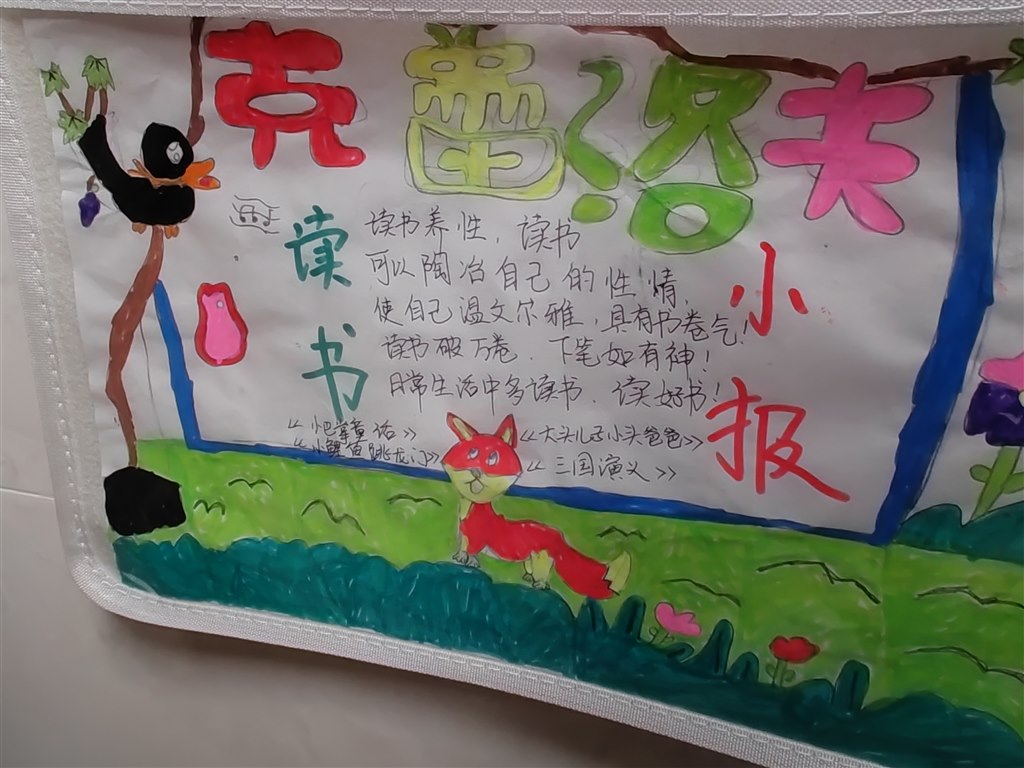 克雷洛夫
读书
小报
读书养性，读书
可以陶冶自己的性情，
使自己温文尔雅，具有书卷气！
读书破万卷．下笔如有神！
日常生活中多读书、读好书！
《小巴掌童话》
《大头儿子小头爸爸》
《小鲤鱼跳龙门》
《三国演义》